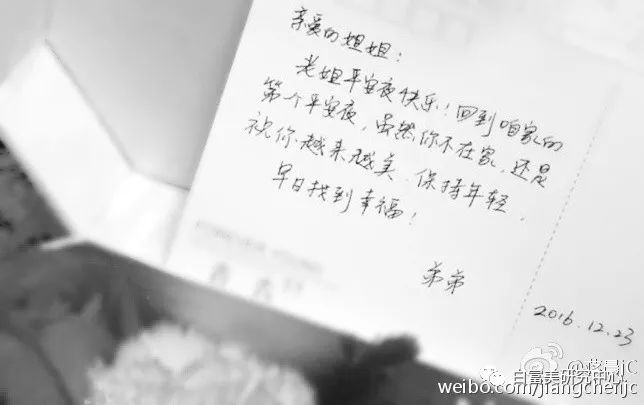 亲爱的姐姐：
老姐平安夜快乐！回到咱家的
第一个平安夜，虽然你不在家，还是
祝你越来越美、保持年轻，
早日找到幸福！
弟弟
2016.12.23
白富美研究中心
weibo.com/jiangchenjc